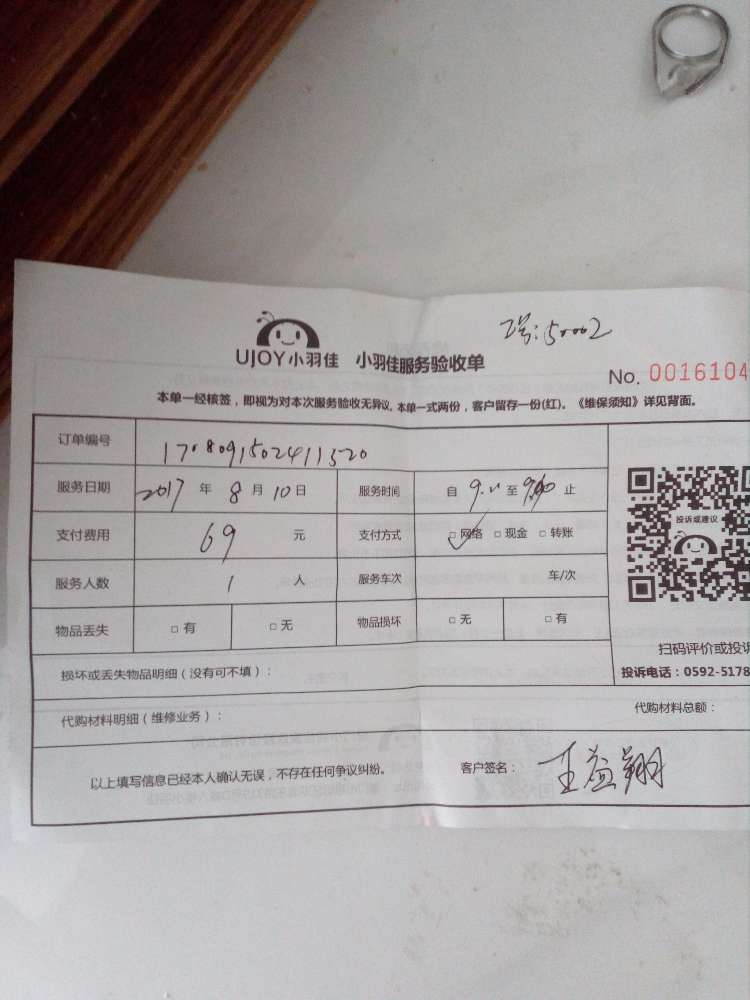 瑞:50002
UJOY小羽佳 小羽佳服务验收单
No. 0016104
本单一经核签，即视为对本次服务验收无异议。本单一式两份，客户留存一份(红)。《维保须知》详见背面。
订单编号 1708091502411520
服务日期 2017 年 8 月 10 日 服务时间 自 至 止
投诉或建议
支付费用 69 元 支付方式 □网络 □现金 □转账
服务人数 1 人 服务车次 车/次
物品丢失 □有 □无 物品损坏 □无 □有
扫码评价或投诉
损坏或丢失物品明细（没有可不填）：
投诉电话：0592-5178
代购材料明细（维修业务）： 代购材料总额：
以上填写信息已经本人确认无误，不存在任何争议纠纷。 客户签名： 王益翔